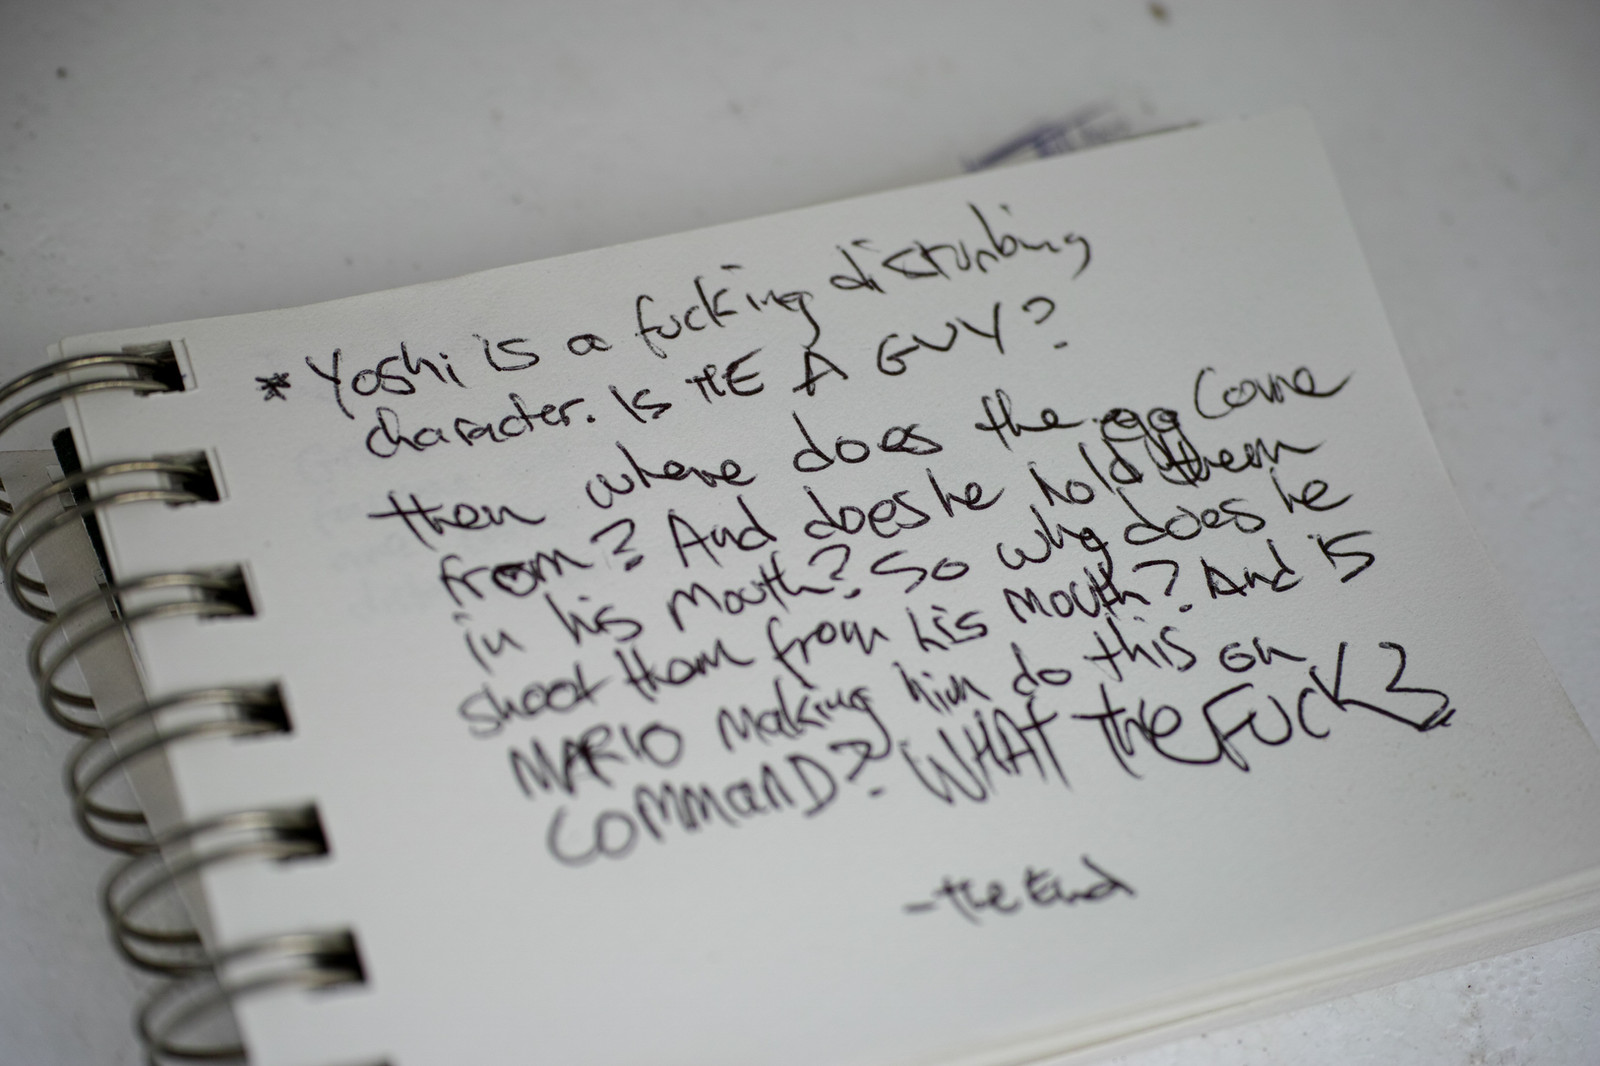 * Yoshi is a fucking disturbing
character. Is HE A GUY?
then where does the egg come
from? And does he hold them
in his mouth? So why does he
shoot them from his mouth? And is
MARIO making him do this on
COMMAND? WHAT the FUCK?
- the End